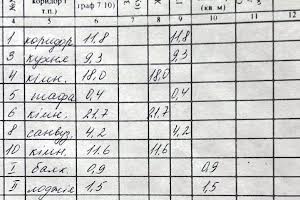 коридор т
т.п.) (граф 7 10) (кв м)
4 5 6 7 8 9 10 11 12
1 коридор 11,8 11,8
3 кухня 9,3 9,3
4 кімн. 18,0 18,0
5 шафа 0,4 0,4
6 кімн. 21,7 21,7
8 санвуз. 4,2 4,2
10 кімн. 11.6 11,6
I балк. 0,9 0,9
II лоджія 1,5 1,5